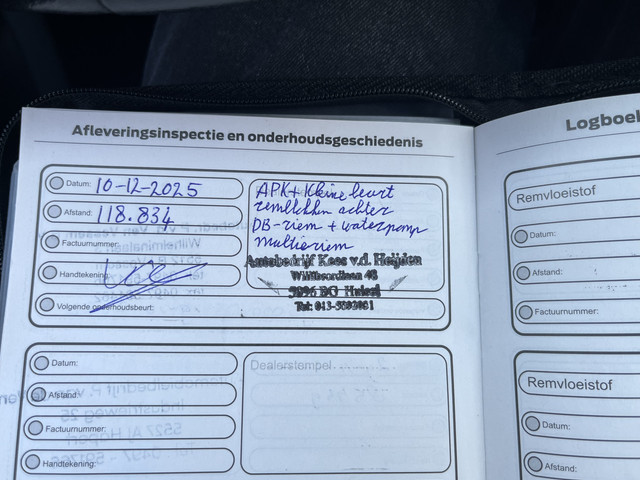 Afleveringsinspectie en onderhoudsgeschiedenis
Datum: 10-12-2025
Afstand: 118.834
Factuurnummer:
Handtekening:
Volgende onderhoudsbeurt:
APK + kleine beurt
remblokken achter
DB-riem + waterpomp
multiriem
Autobedrijf Kees v.d. Heijden
5096 BG Hulsel
Tel: 013-5093081
Datum:
Afstand:
Factuurnummer:
Handtekening:
Dealerstempel
Logboek
Remvloeistof
Datum:
Afstand:
Factuurnummer:
Remvloeistof
Datum:
Afstand: